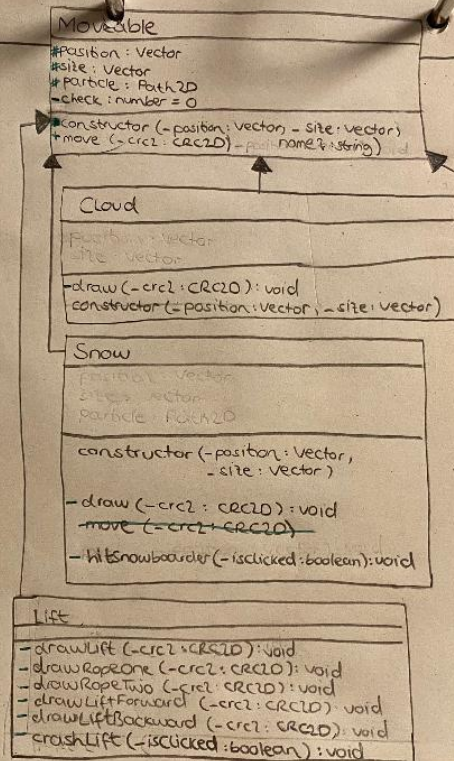 Moveable
#position : Vector
#size : Vector
#particle : Path2D
-check : number = 0
constructor (-position : Vector, - size : Vector)
+move (-crc2 : CRC2D) name? : string)
Cloud
position : Vector
size : Vector
-draw (-crc2 : CRC2D) : void
constructor (-position : Vector, -size : Vector)
Snow
position : Vector
size : Vector
particle : Path2D
constructor (-position : Vector,
-size : Vector)
-draw (-crc2 : CRC2D) : void
-move (-crc2 : CRC2D)
-hitsnowboarder (-isclicked : boolean) : void
Lift
-drawLift (-crc2 : CRC2D) : void
-drawRopeOne (-crc2 : CRC2D) : void
-drawRopeTwo (-crc2 : CRC2D) : void
-drawLiftForward (-crc2 : CRC2D) : void
-drawLiftBackward (-crc2 : CRC2D) : void
-crashLift (-isClicked : boolean) : void